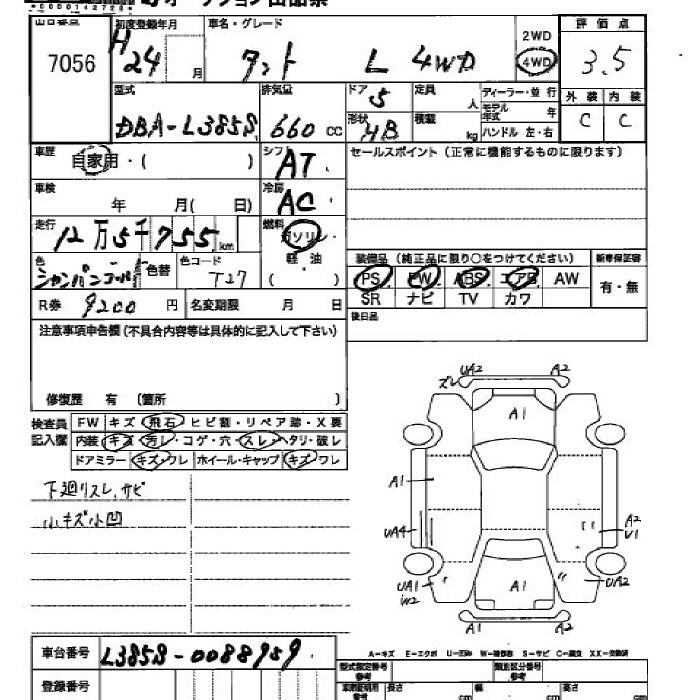 出品番号
7056
初度登録年月
H24 月
車名・グレード
タント L 4WD
2WD
4WD
評価点
3.5
外装 内装
C C
型式
DBA-L385S
排気量
660 cc
ドア
5
形状
HB
定員 人
積載 kg
ディーラー・並行
モデル年式 年
ハンドル 左・右
車歴
自家用・( )
シフト
AT
セールスポイント(正常に機能するものに限ります)
車検
年 月( 日)
冷房
AC
走行
12万5千755 km
燃料
ガソリン
軽油
( )
色
シャンパンゴールド
色替
色コード
T27
装備品 (純正品に限り○をつけてください)
PS PW ABS エアB AW
SR ナビ TV カワ
新車保証書
有・無
R券 9200 円
名変期限 月 日
後日品
注意事項申告欄(不具合内容等は具体的に記入して下さい)
修復歴 有 〔箇所 〕
検査員記入欄
FW キズ・飛石・ヒビ割・リペア跡・X要
内装 キズ・汚レ・コゲ・穴・スレ・ヘタリ・破レ
ドアミラー キズ・ワレ ホイール・キャップ キズ・ワレ
下廻りスレ,サビ
小キズ小凹
ズレ UA2 A2
A1
A1
UA4
A2
U1
UA1
W2
A1
UA2
A1 A2
A-キズ E-エクボ U-凹み W-補修跡 S-サビ C-腐食 XX-交換済
車台番号
L385S-0088959
登録番号
型式指定番号
参考
類別区分番号
参考
長さ cm
幅 cm
高さ cm